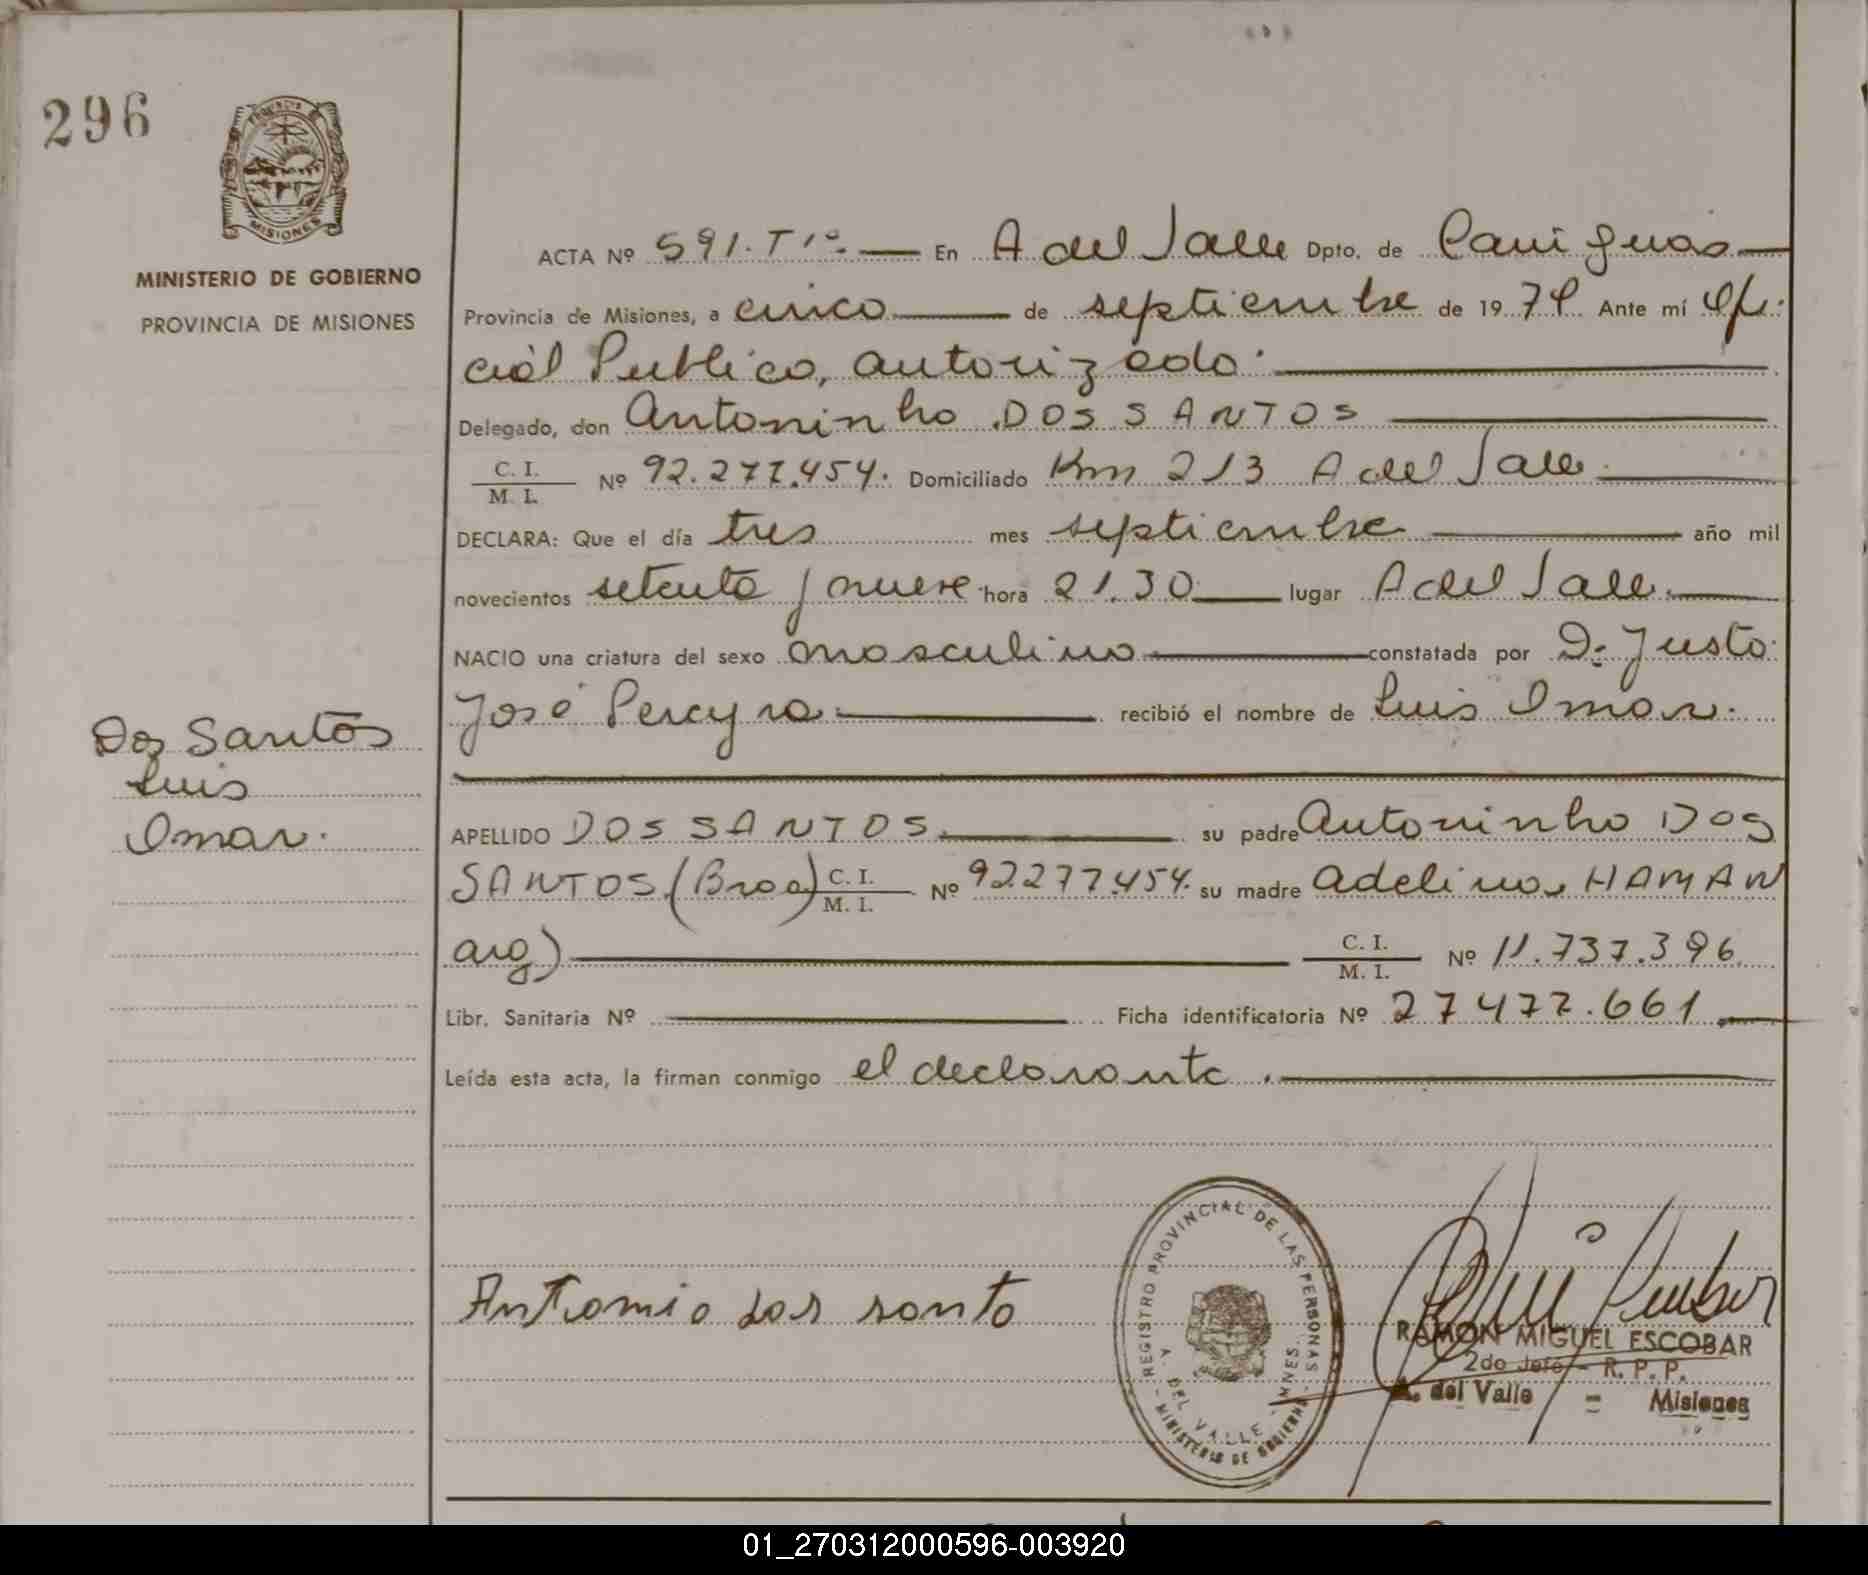 296
PROVINCIA DE
MISIONES
MINISTERIO DE GOBIERNO
PROVINCIA DE MISIONES
ACTA Nº 591. Tº1º. En A del Valle Dpto. de Cainguas
Provincia de Misiones, a cinco de septiembre de 1979 Ante mí Ofi-
cial Publico, autorizado.
Delegado, don Antoninho DOS SANTOS
C. I.
M. I. Nº 92.277.454. Domiciliado Km 213 A del Valle.
DECLARA: Que el día tres mes septiembre año mil
novecientos setenta y nueve hora 21.30 lugar A del Valle.
NACIO una criatura del sexo masculino constatada por Dr Justo
José Pereyra. recibió el nombre de Luis Omar.
Dos Santos
Luis
Omar.
APELLIDO DOS SANTOS. su padre Antoninho DOS
SANTOS (Bras) C. I.
M. I. Nº 92.277.454. su madre Adelina HAMAN
arg) C. I.
M. I. Nº 11.737.396
Libr. Sanitaria Nº Ficha identificatoria Nº 27477.661.
Leída esta acta, la firman conmigo el declarante.
Antonio dos santo
REGISTRO PROVINCIAL DE LAS PERSONAS
A. DEL VALLE - MNES.
MINISTERIO DE GOBIERNO
RAMON MIGUEL ESCOBAR
2do Jefe - R. P. P.
A. del Valle = Misiones
01_270312000596-003920